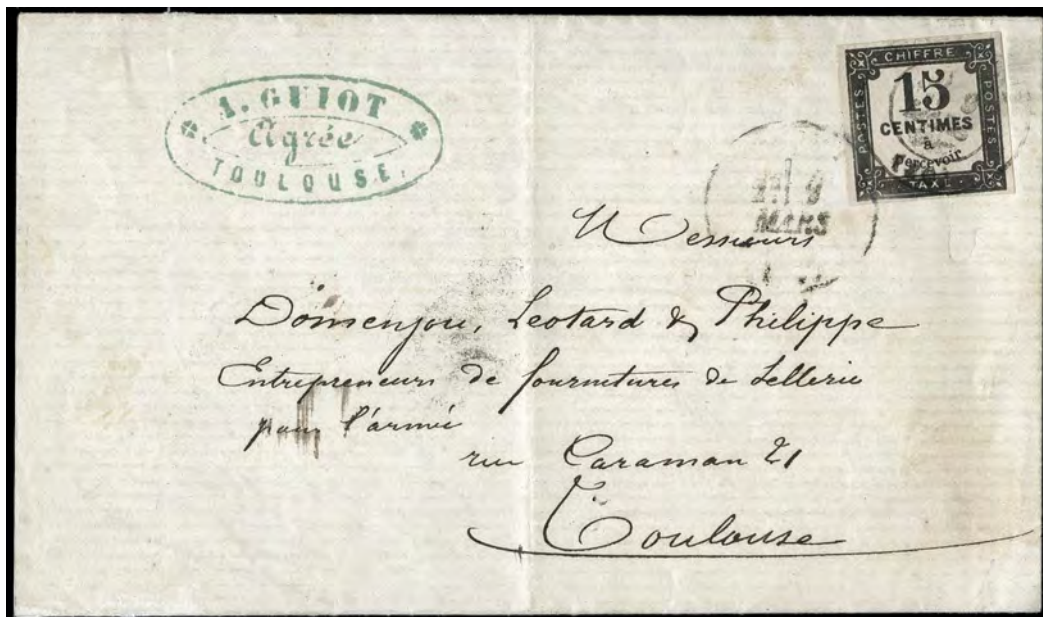 A. GUIOT
Agréé
TOULOUSE.
CHIFFRE
POSTES
15
CENTIMES
à
Percevoir
POSTES
TAXE
9
MARS
Messieurs
Domenjou, Leotard & Philippe
Entrepreneurs de fournitures de Sellerie
pour l'armée
rue Caraman 21
Toulouse